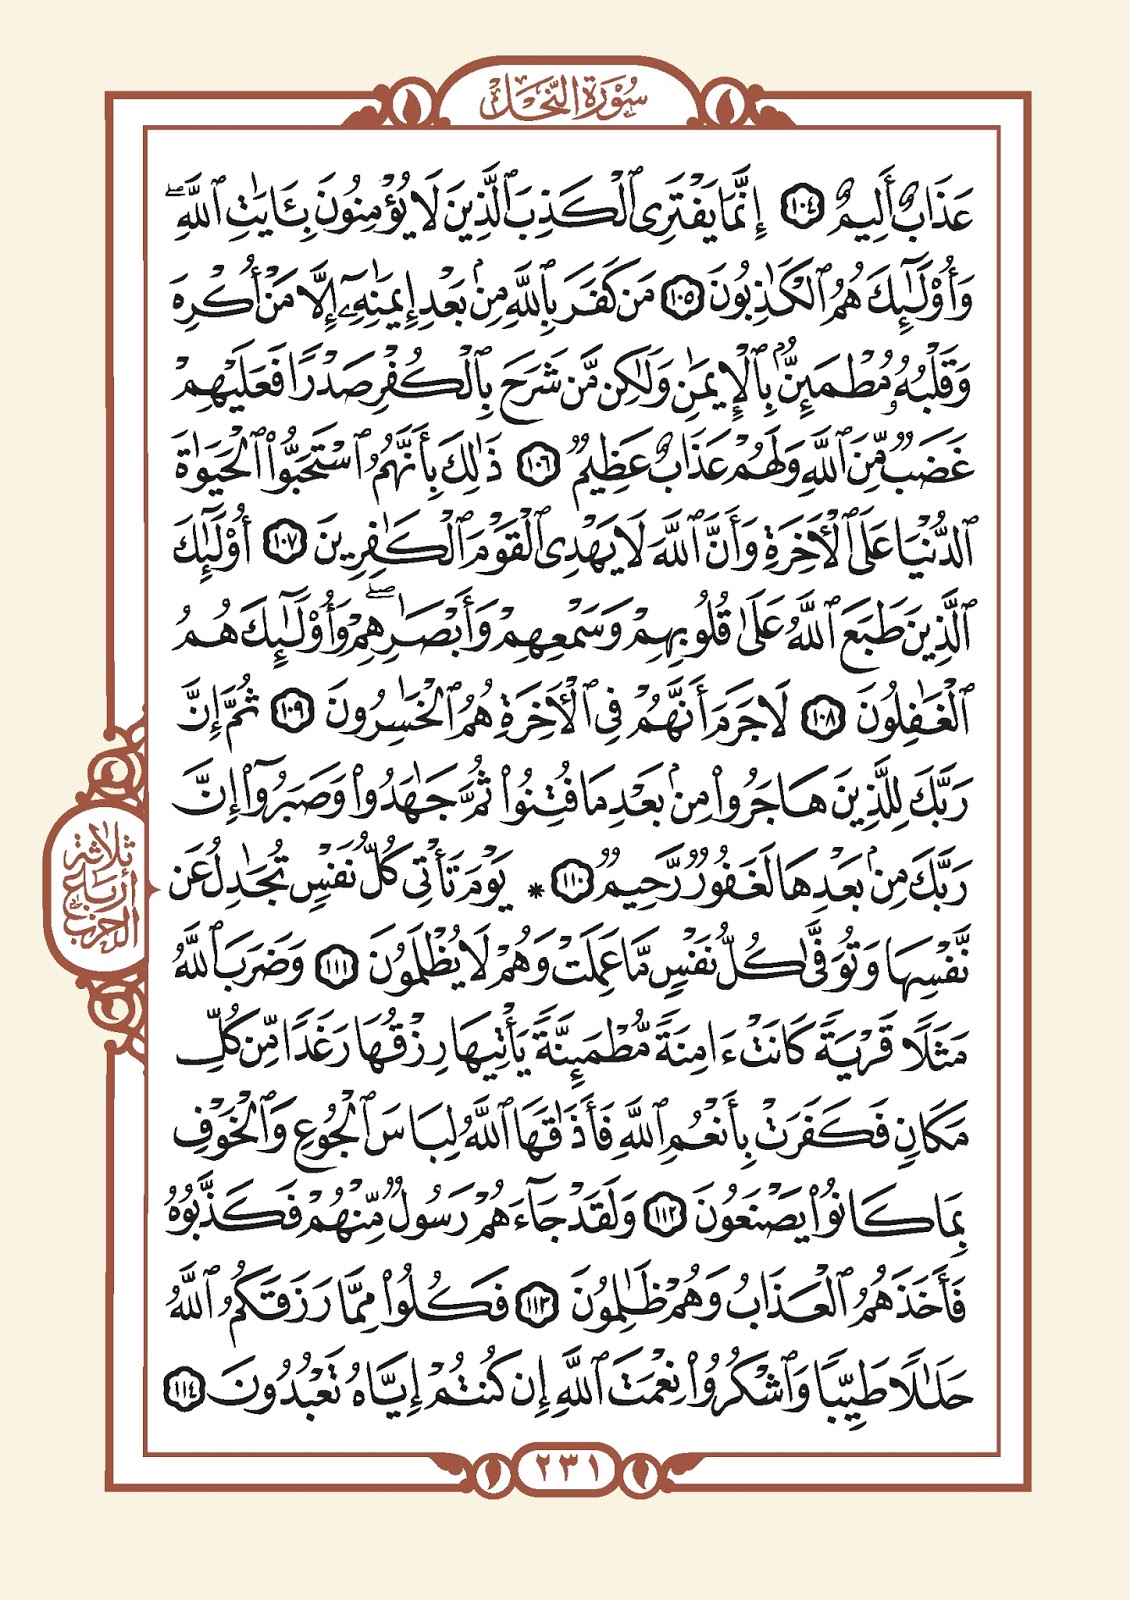 سُورَةُ النَّحْلِ
عَذَابٌ أَلِيمٌ ١٠٤ إِنَّمَا يَفْتَرِى ٱلْكَذِبَ ٱلَّذِينَ لَا يُؤْمِنُونَ بِـَٔايَٰتِ ٱللَّهِۖ
وَأُوْلَٰٓئِكَ هُمُ ٱلْكَٰذِبُونَ ١٠٥ مَن كَفَرَ بِٱللَّهِ مِنۢ بَعْدِ إِيمَٰنِهِۦٓ إِلَّا مَنْ أُكْرِهَ
وَقَلْبُهُۥ مُطْمَئِنٌّۢ بِٱلْإِيمَٰنِ وَلَٰكِن مَّن شَرَحَ بِٱلْكُفْرِ صَدْرًا فَعَلَيْهِمْ
غَضَبٌ مِّنَ ٱللَّهِ وَلَهُمْ عَذَابٌ عَظِيمٌ ١٠٦ ذَٰلِكَ بِأَنَّهُمُ ٱسْتَحَبُّواْ ٱلْحَيَوٰةَ
ٱلدُّنْيَا عَلَى ٱلْأَخِرَةِ وَأَنَّ ٱللَّهَ لَا يَهْدِى ٱلْقَوْمَ ٱلْكَٰفِرِينَ ١٠٧ أُوْلَٰٓئِكَ
ٱلَّذِينَ طَبَعَ ٱللَّهُ عَلَىٰ قُلُوبِهِمْ وَسَمْعِهِمْ وَأَبْصَٰرِهِمْۖ وَأُوْلَٰٓئِكَ هُمُ
ٱلْغَٰفِلُونَ ١٠٨ لَا جَرَمَ أَنَّهُمْ فِى ٱلْأَخِرَةِ هُمُ ٱلْخَٰسِرُونَ ١٠٩ ثُمَّ إِنَّ
رَبَّكَ لِلَّذِينَ هَاجَرُواْ مِنۢ بَعْدِ مَا فُتِنُواْ ثُمَّ جَٰهَدُواْ وَصَبَرُوٓاْ إِنَّ
رَبَّكَ مِنۢ بَعْدِهَا لَغَفُورٌ رَّحِيمٌ ١١٠ * يَوْمَ تَأْتِى كُلُّ نَفْسٍ تُجَٰدِلُ عَن
نَّفْسِهَا وَتُوَفَّىٰ كُلُّ نَفْسٍ مَّا عَمِلَتْ وَهُمْ لَا يُظْلَمُونَ ١١١ وَضَرَبَ ٱللَّهُ
مَثَلًا قَرْيَةً كَانَتْ ءَامِنَةً مُّطْمَئِنَّةً يَأْتِيهَا رِزْقُهَا رَغَدًا مِّن كُلِّ
مَكَانٍ فَكَفَرَتْ بِأَنْعُمِ ٱللَّهِ فَأَذَٰقَهَا ٱللَّهُ لِبَاسَ ٱلْجُوعِ وَٱلْخَوْفِ
بِمَا كَانُواْ يَصْنَعُونَ ١١٢ وَلَقَدْ جَآءَهُمْ رَسُولٌ مِّنْهُمْ فَكَذَّبُوهُ
فَأَخَذَهُمُ ٱلْعَذَابُ وَهُمْ ظَٰلِمُونَ ١١٣ فَكُلُواْ مِمَّا رَزَقَكُمُ ٱللَّهُ
حَلَٰلًا طَيِّبًا وَٱشْكُرُواْ نِعْمَتَ ٱللَّهِ إِن كُنتُمْ إِيَّاهُ تَعْبُدُونَ ١١٤
ثلاثة
أرباع
الحزب
٢٣١